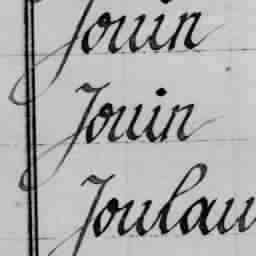 Jouin
Jouin
Joulau